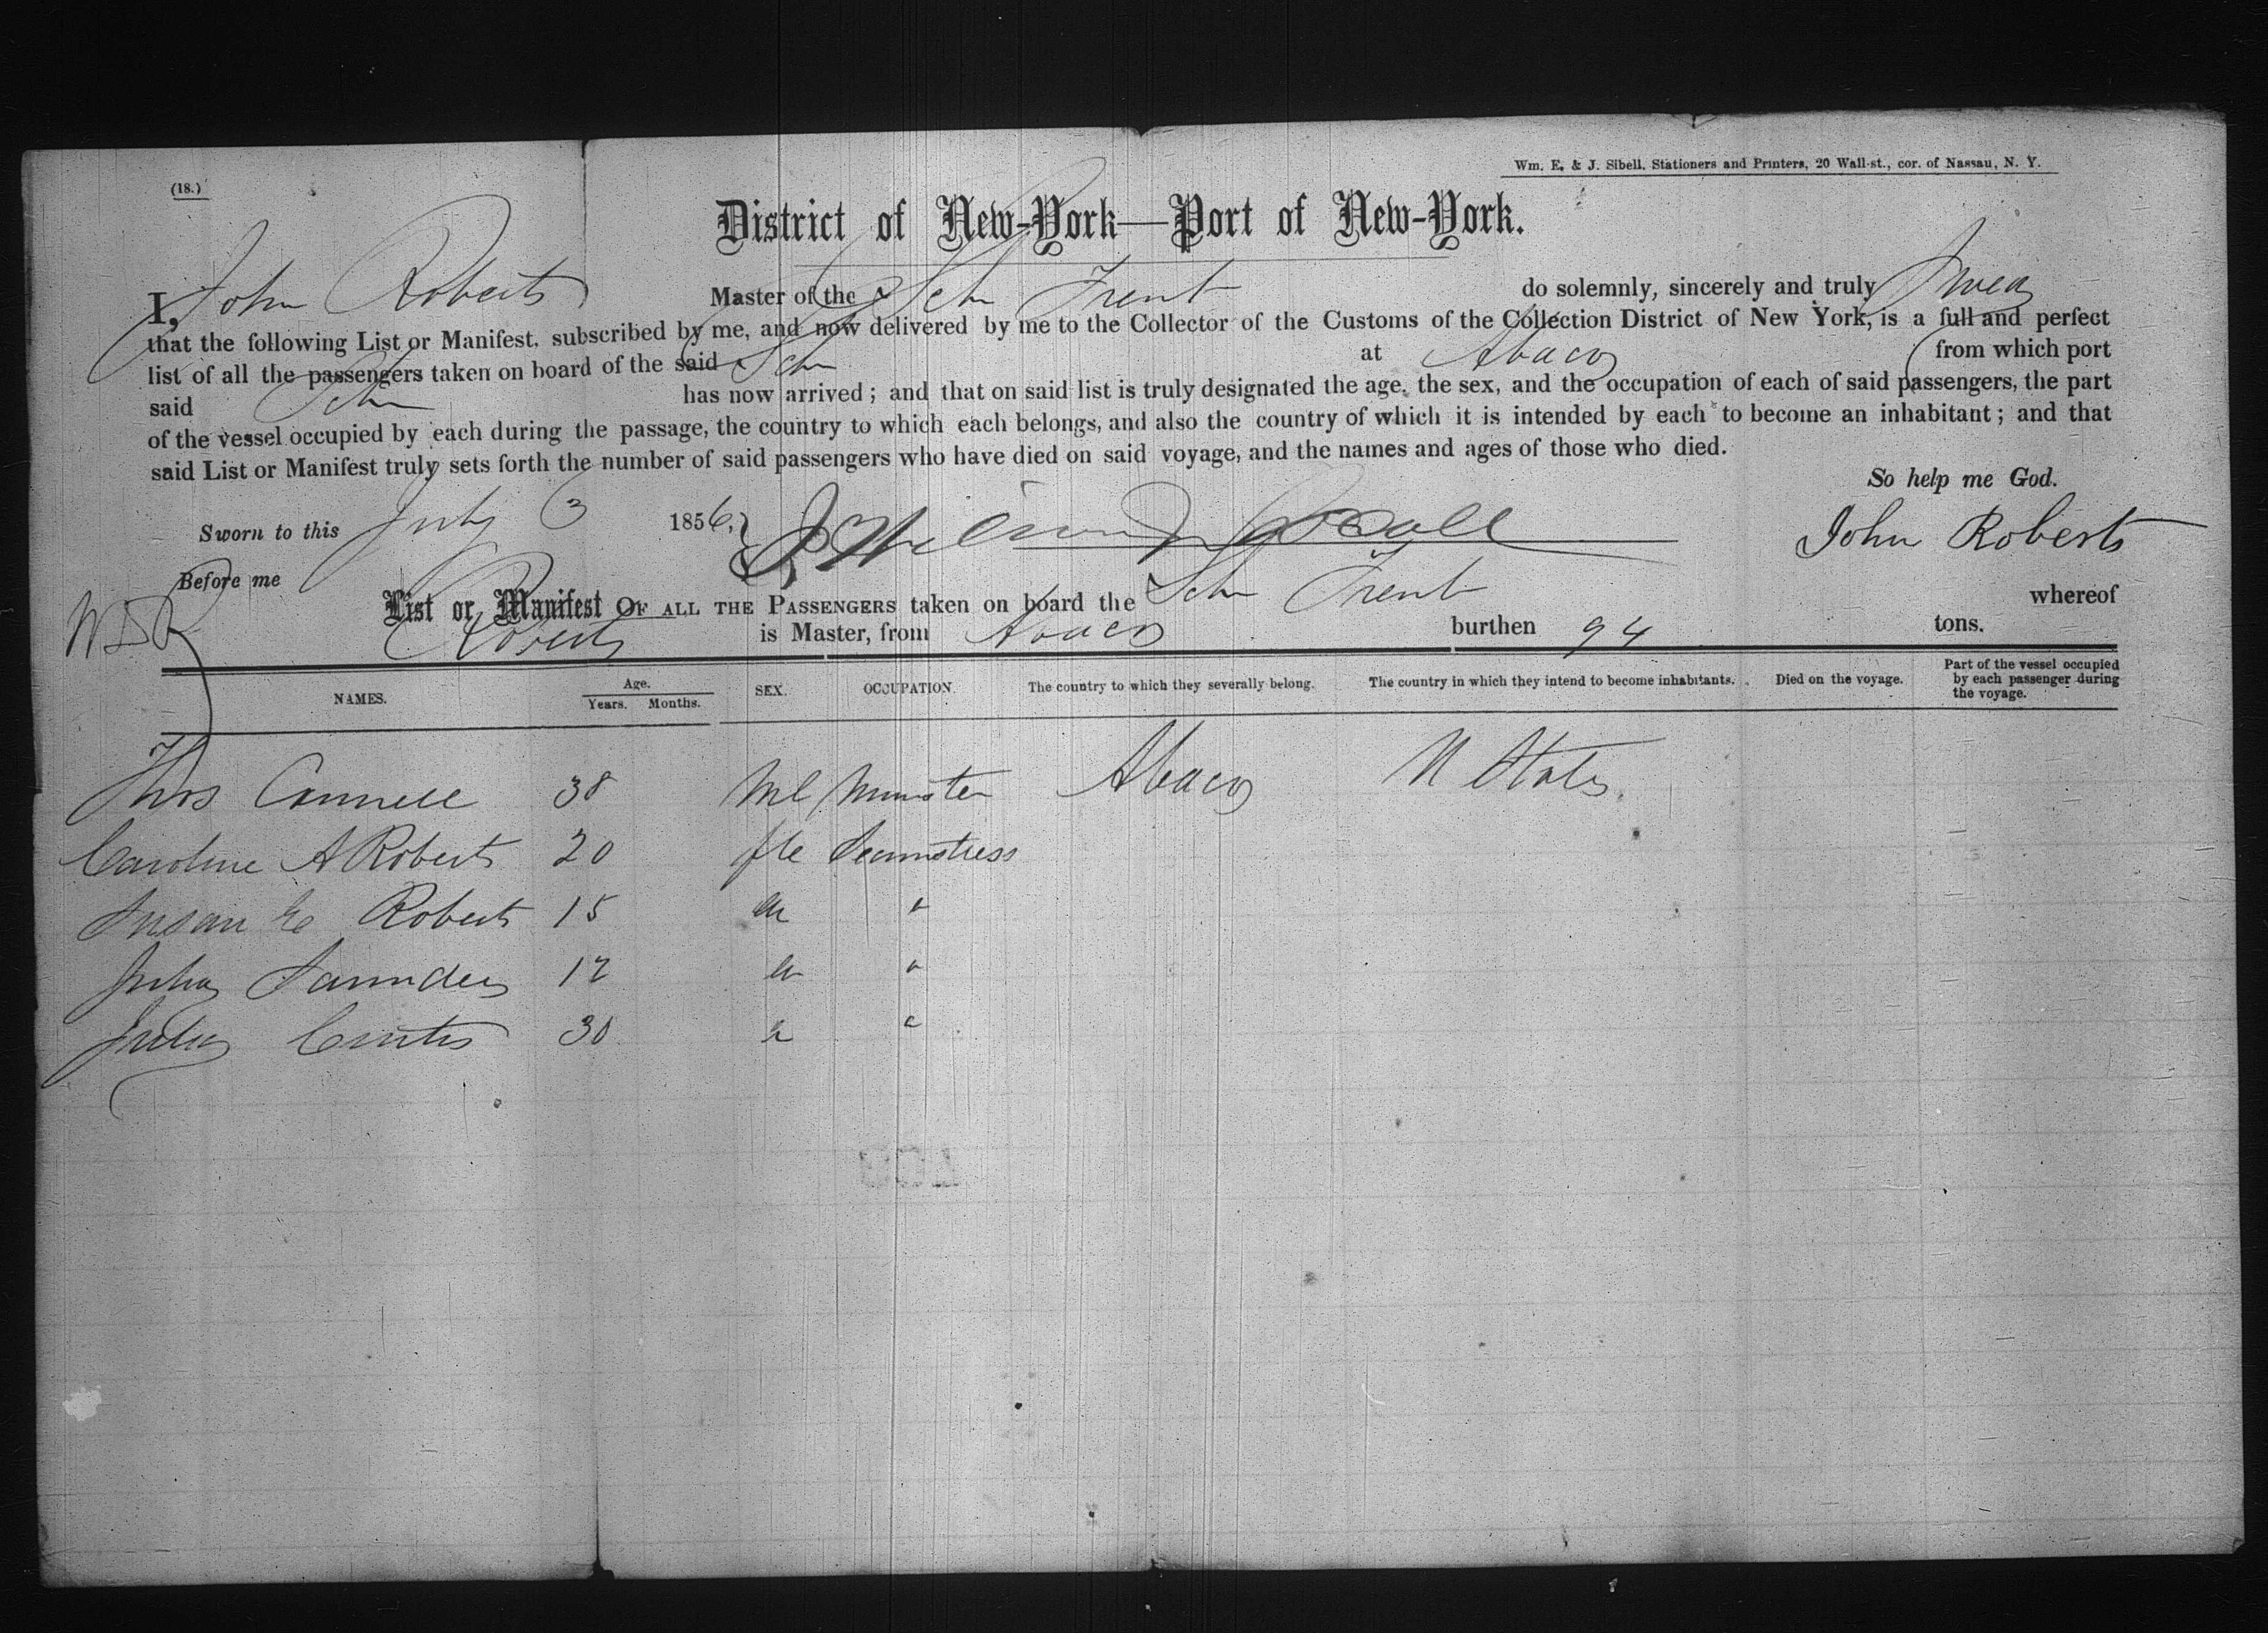 Wm. E. & J. Sibell, Stationers and Printers, 20 Wall-st., cor. of Nassau, N. Y.
(18.)
District of New-York—Port of New-York.
I, John Roberts Master of the Sch Trent do solemnly, sincerely and truly Swear
that the following List or Manifest, subscribed by me, and now delivered by me to the Collector of the Customs of the Collection District of New York, is a full and perfect
list of all the passengers taken on board of the said Sch at Abaco from which port
said Sch has now arrived; and that on said list is truly designated the age, the sex, and the occupation of each of said passengers, the part
of the vessel occupied by each during the passage, the country to which each belongs, and also the country of which it is intended by each to become an inhabitant; and that
said List or Manifest truly sets forth the number of said passengers who have died on said voyage, and the names and ages of those who died.
So help me God.
Sworn to this July 3 1856,
John Roberts
Before me
List or Manifest OF ALL THE PASSENGERS taken on board the Sch Trent whereof
Roberts is Master, from Abaco burthen 94 tons.
NAMES. Age. Years. Months. SEX. OCCUPATION. The country to which they severally belong. The country in which they intend to become inhabitants. Died on the voyage. Part of the vessel occupied by each passenger during the voyage.
Thos 38 Ml Minister Abaco U States
Caroline A Roberts 20 fle Seamstress
Susan E Roberts 15 " "
Julia Saunders 12 " "
Julia Curtis 30 " "